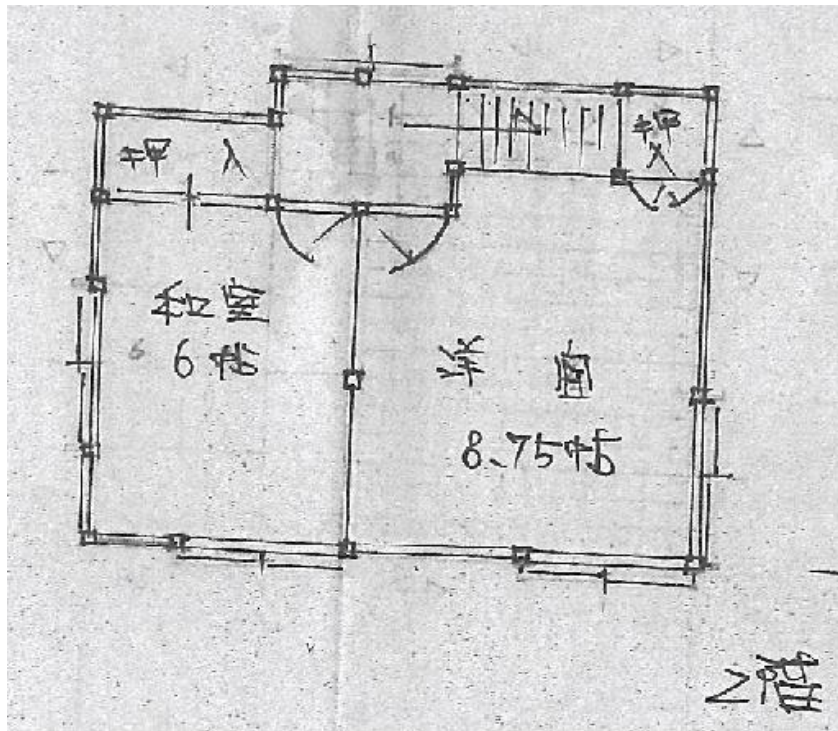 押 入
押
入
和室
6帖
洋 間
8.75帖
2階